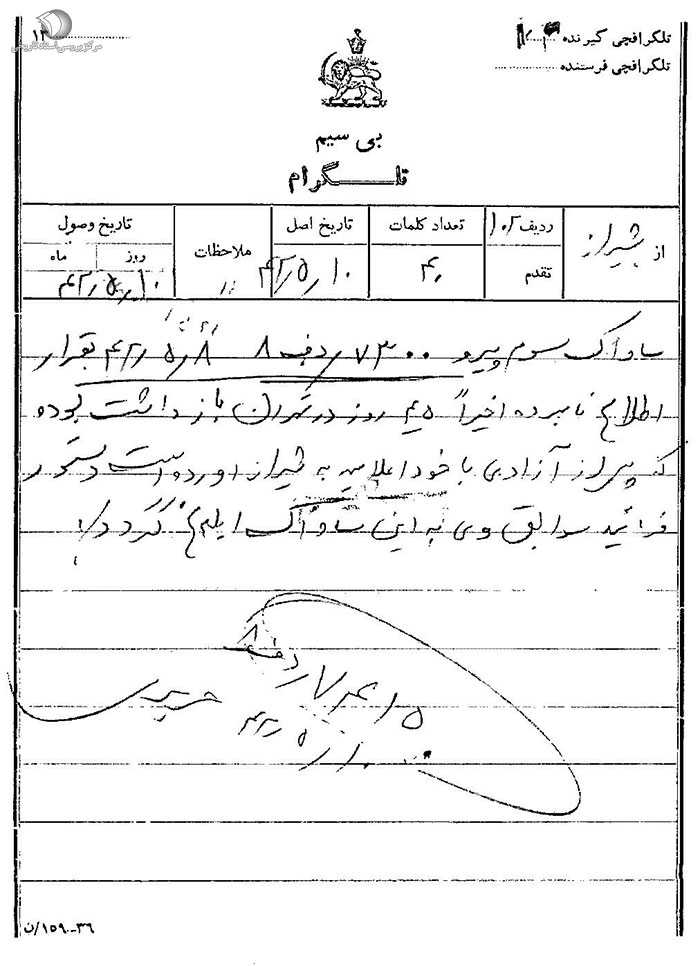 مرکز بررسی اسناد تاریخی
۱۳
تلگرافچی گیرنده
تلگرافچی فرستنده
بی سیم
تلگرام
از شیراز
ردیف ۱۰۲
تقدم
تعداد کلمات
۴۰
تاریخ اصل
۴۲٫۵٫۱۰
ملاحظات
تاریخ وصول
روز
ماه
۴۲٫۵٫۱۰
ساواک سوم پیرو ۷۳۰۰٫ردف ۸ ۴۲٫۵٫۸ بقرار
اطلاع نامبرده اخیراً ۴۵ روز در تهران بازداشت بوده و
که پس از آزادی با خود اعلامیه به شیراز آورده است دستور
فرمائید سوابق وی به این ساواک ابلاغ گردد
۷۴۱۵٫ردف ۸
۴۲٫۵٫۱۰
ن/۱۵۹-۳۶